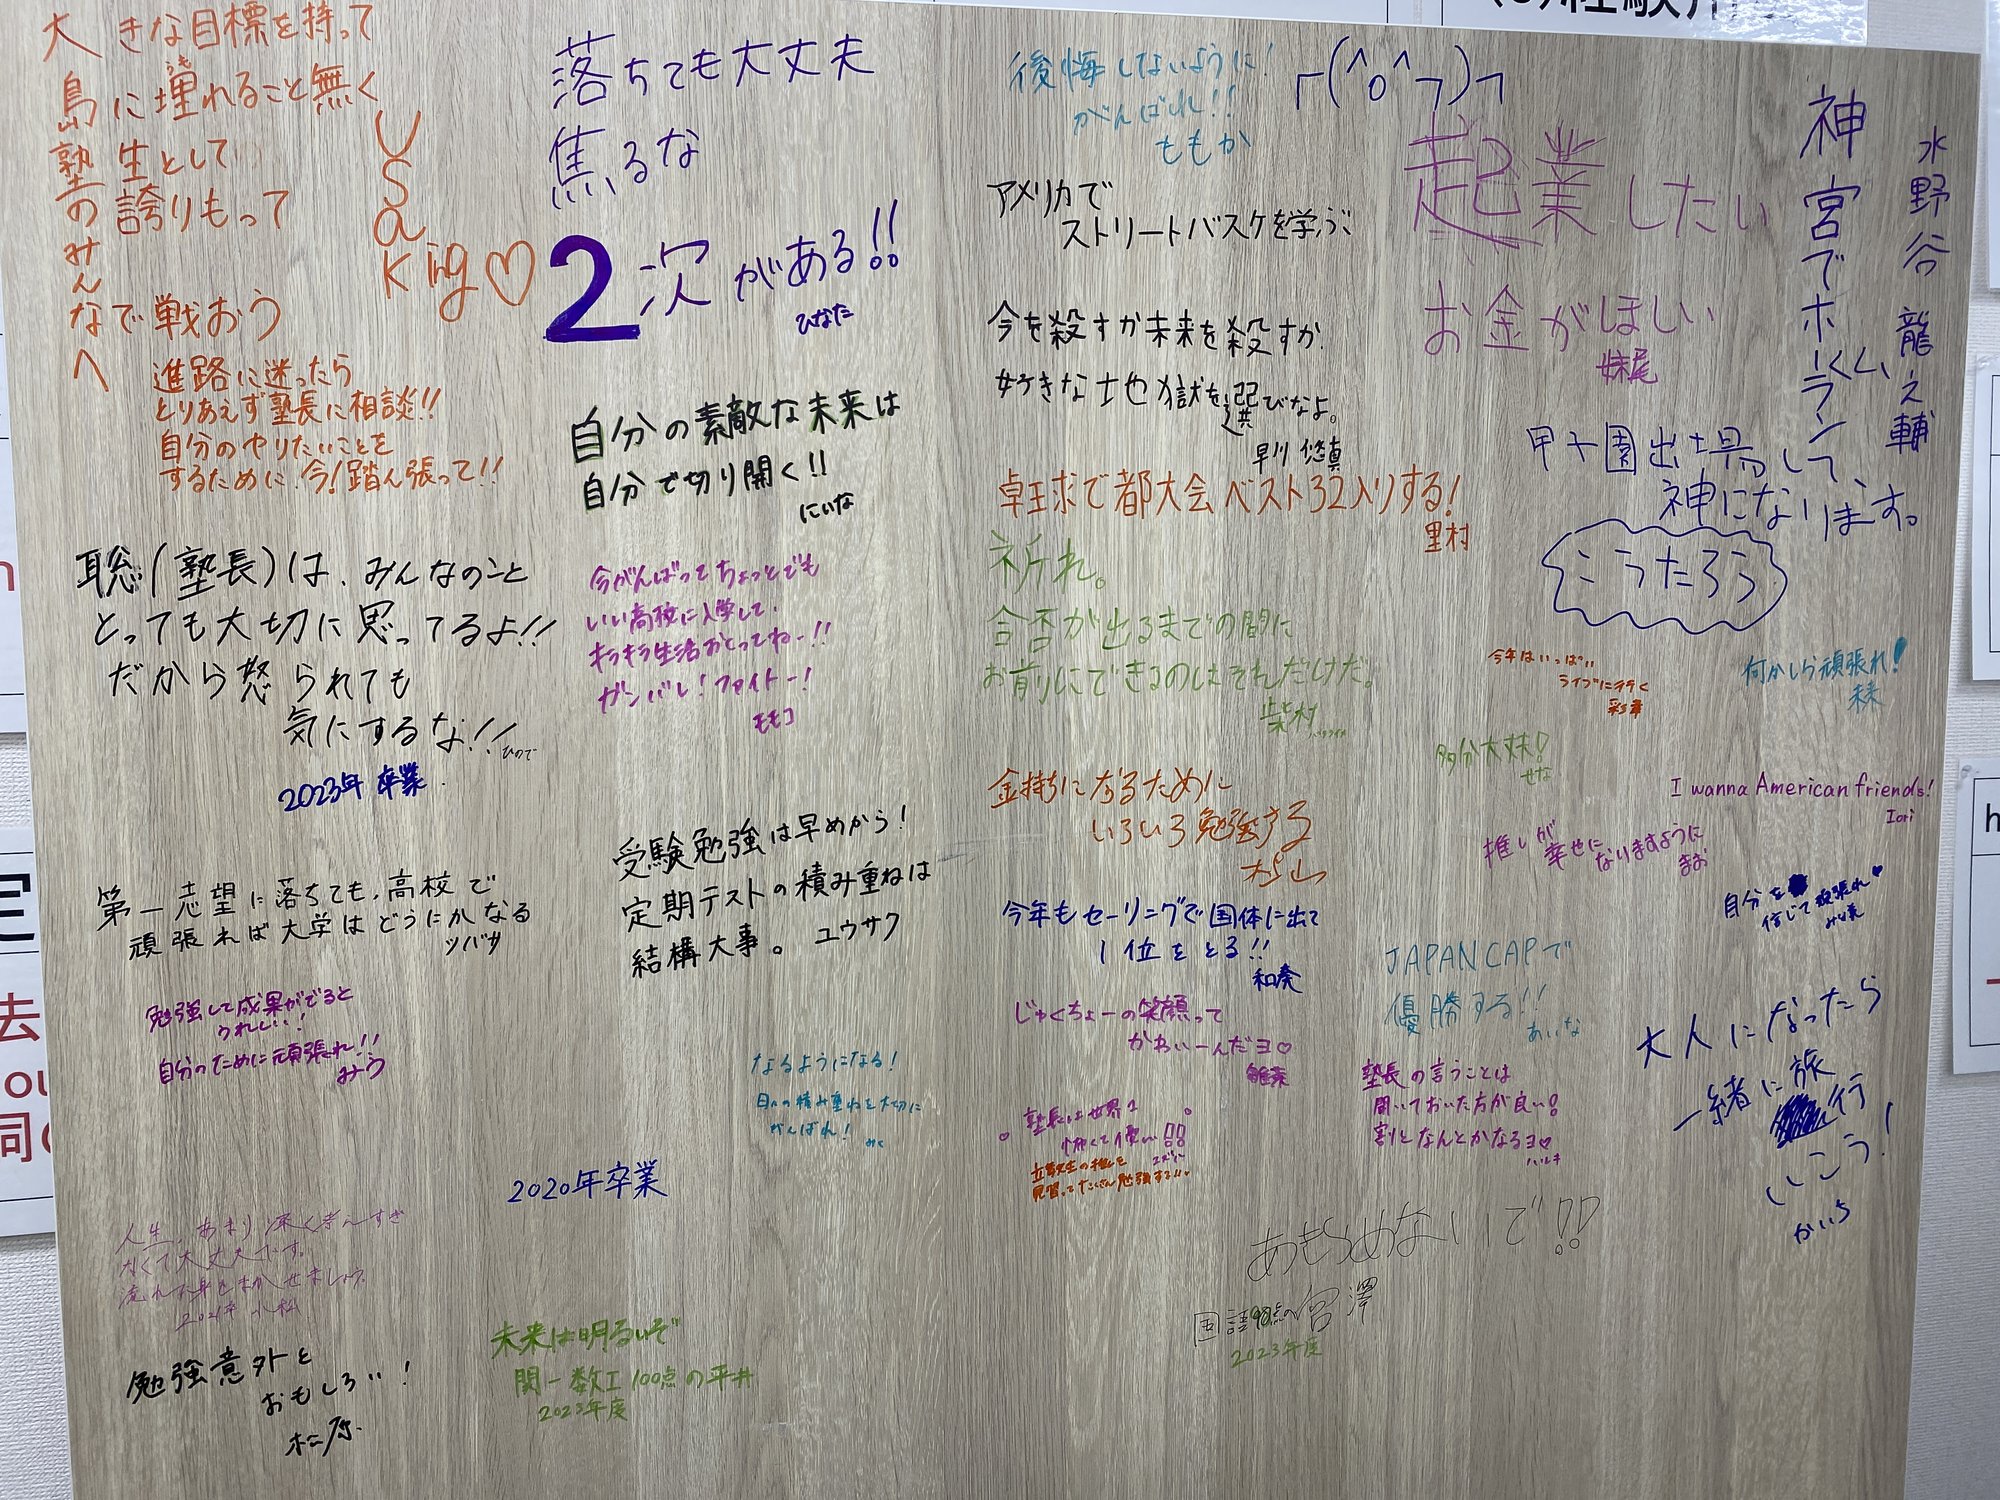 大きな目標を持って
島に埋れること無く
うも
塾生として
誇りもって
塾のみんなへ
で戦おう
USaKing♡
進路に迷ったら
とりあえず塾長に相談!!
自分のやりたいことを
するために今!踏ん張って!!
聡(塾長)は、みんなのこと
とっても大切に思ってるよ!!
だから怒られても
気にするな!!
ひので
2023年卒業
第一志望に落ちても、高校で
頑張れば大学はどうにかなる
ツバサ
勉強して成果がでると
うれしい!
自分のために頑張れ!!
みう
人生、あまり深く考えすぎ
なくて大丈夫です。
流れに身をまかせましょう。
勉強意外と
おもしろい!
松原
落ちても大丈夫
焦るな
2次がある!!
ひなた
自分の素敵な未来は
自分で切り開く!!
にいな
今がんばってちょっとでも
いい高校に入学して、
キラキラ生活おくってねー!!
ガンバレ!ファイトー!
モモコ
受験勉強は早めから!
定期テストの積み重ねは
結構大事。ユウサク
なるようになる!
日々の積み重ねを大切に
がんばれ!
みく
2020年卒業
未来は明るいぞ
関一数I 100点の平井
2023年度
後悔しないように!
がんばれ!!
ももか
アメリカで
ストリートバスケを学ぶ
今を殺すか未来を殺すか、
好きな地獄を選びなよ。
早川 悠真
卓球で都大会ベスト32入りする!
里村
祈れ。
合否が出るまでの間に
お前にできるのはそれだけだ。
柴村
金持ちになるために
いろいろ勉強する
杉山
今年もセーリングで国体に出て
1位をとる!!
和奏
じゅくちょーの笑顔って
かわいーんだヨ♡
塾長は世界1
怖くて優しい!!
立教生の推しを
見習ってたくさん勉強する!!
あきらめないで!!
国語90点の宮澤
2023年度
┌(^o^┐)┐
起業したい
お金がほしい
妹尾
水野谷 龍之輔
神宮でホームラン
甲子園出場して、
神になります。
こうたろう
今年はいっぱい
ライブに行く
何かしら頑張れ!
多分大丈夫!
せな
I wanna American friends!
Iori
推しが
幸せに
なりますように
まお
自分を
信じて頑張れ♥
JAPAN CAPで
優勝する!!
あいな
塾長の言うことは
聞いておいた方が良い!
割となんとかなるヨ♡
ハルキ
大人になったら
一緒に旅
行
いこう!
かいち